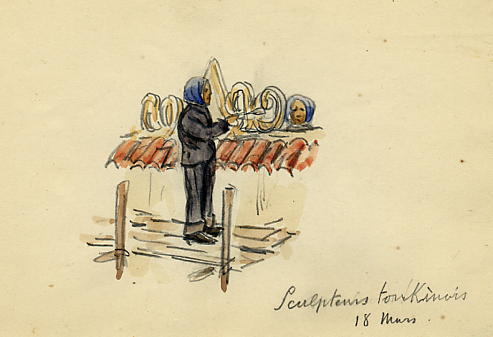 Sculpteurs tonkinois
18 Mars.